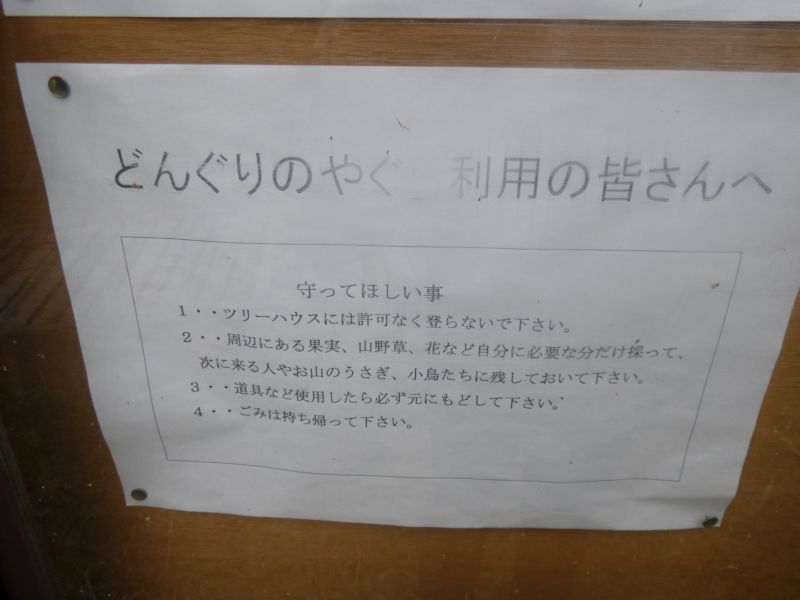 どんぐりのやぐ 利用の皆さんへ
守ってほしい事
１・・ツリーハウスには許可なく登らないで下さい。
２・・周辺にある果実、山野草、花など自分に必要な分だけ採って、
次に来る人やお山のうさぎ、小鳥たちに残しておいて下さい。
３・・道具など使用したら必ず元にもどして下さい。
４・・ごみは持ち帰って下さい。